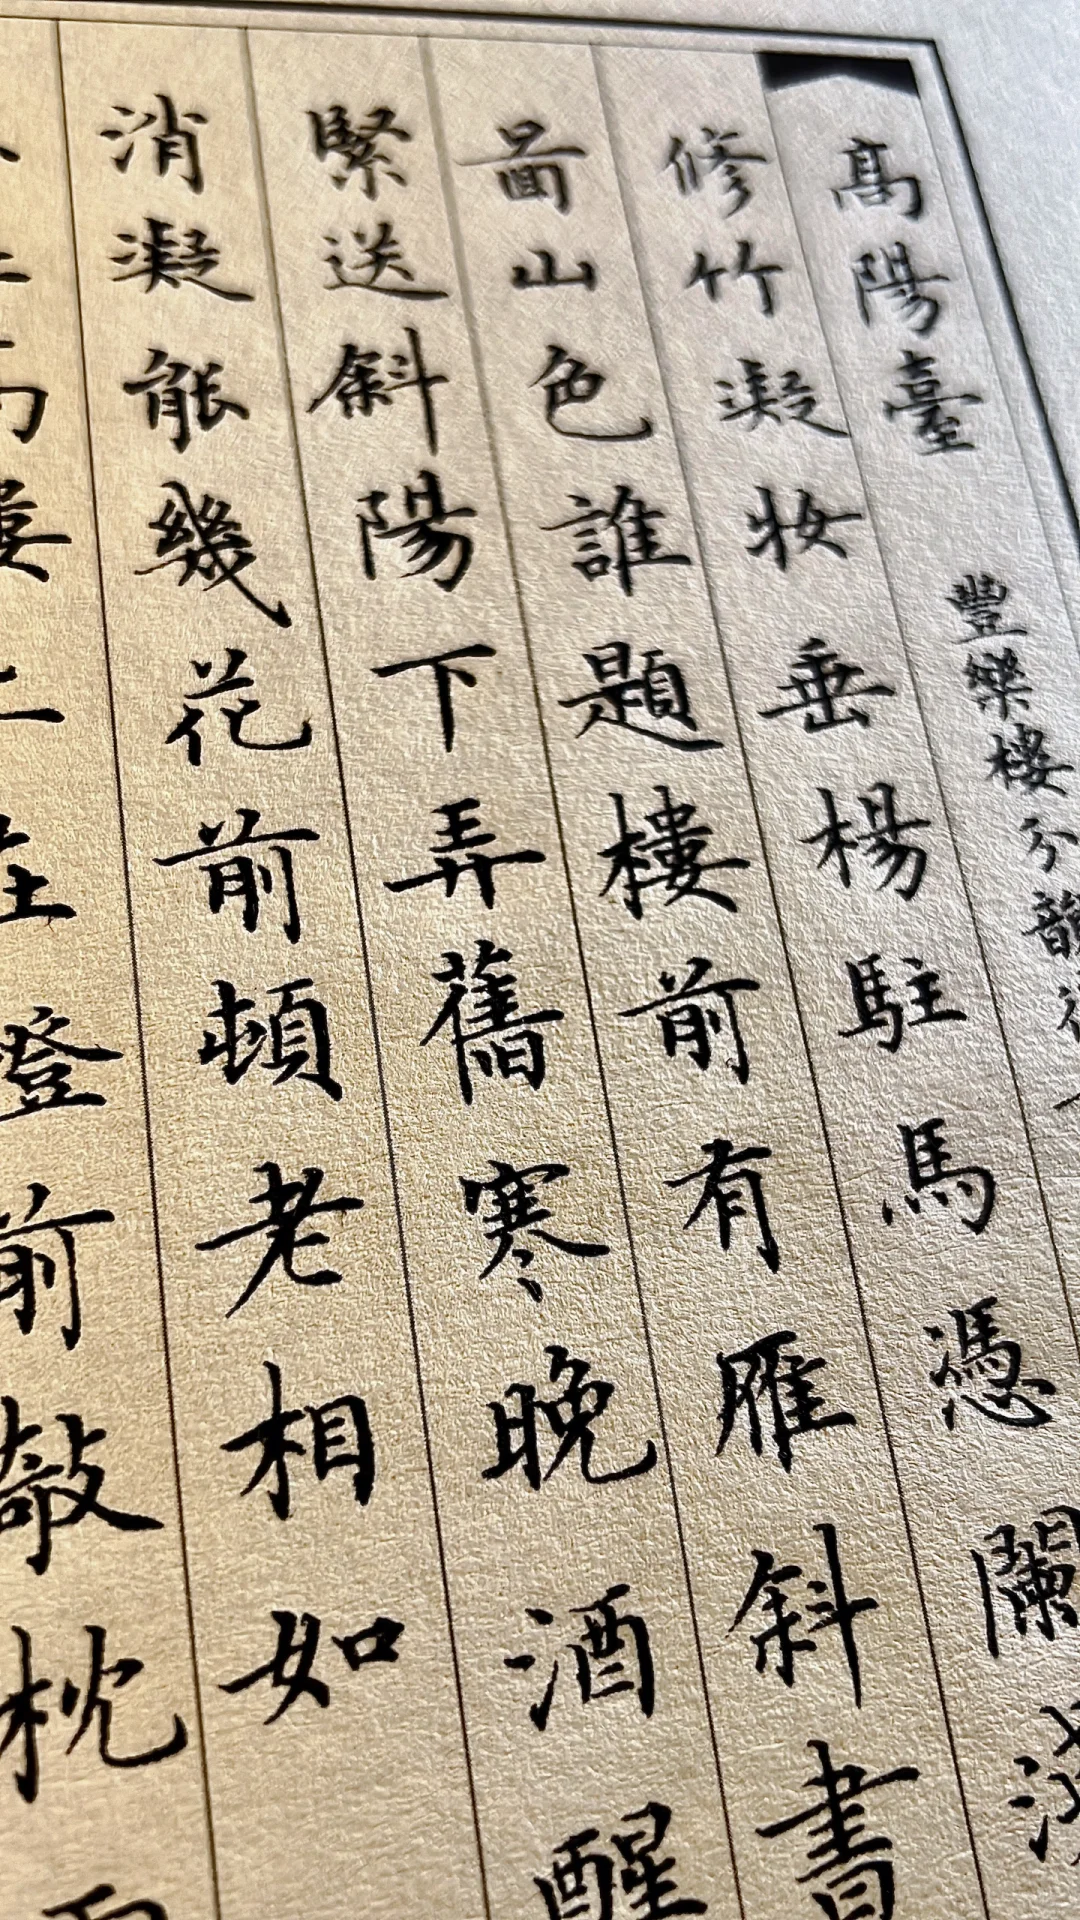 高陽臺 豐樂樓分韻得
修竹凝妝垂楊駐馬憑闌淺
畫山色誰題樓前有雁斜書
緊送斜陽下弄舊寒晚酒醒
消凝能幾花前頓老相如
高樓上在燈前攲枕雨